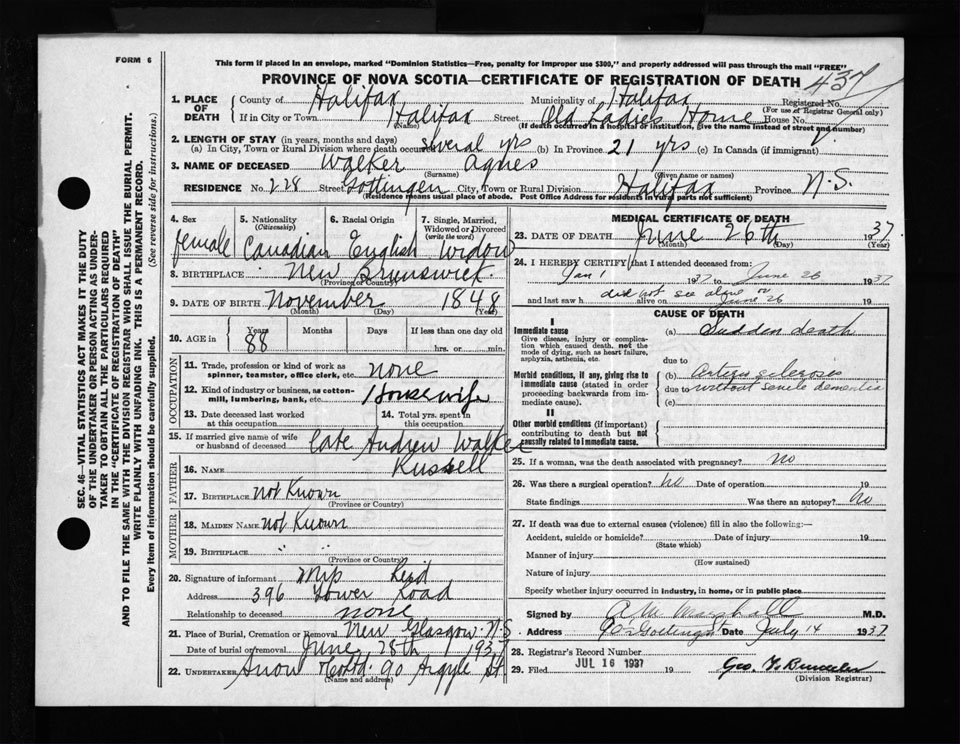 FORM 6
This form if placed in an envelope, marked "Dominion Statistics—Free, penalty for improper use $300," and properly addressed will pass through the mail "FREE"
PROVINCE OF NOVA SCOTIA—CERTIFICATE OF REGISTRATION OF DEATH
437
1. PLACE OF DEATH
County of Halifax Municipality of Halifax Registered No.
(For use of Registrar General only)
If in City or Town Halifax Street Old Ladies Home House No.
(Name) (If death occurred in a hospital or institution, give the name instead of street and number)
2. LENGTH OF STAY (in years, months and days)
(a) In City, Town or Rural Division where death occurred several yrs (b) In Province 21 yrs (c) In Canada (if immigrant)
3. NAME OF DECEASED Walker Agnes
(Surname) (Given name or names)
RESIDENCE No. 228 Street Gottingen City, Town or Rural Division Halifax Province N.S.
(Residence means usual place of abode. Post Office Address for residents in rural parts not sufficient)
4. Sex female
5. Nationality (Citizenship) Canadian
6. Racial Origin English
7. Single, Married, Widowed or Divorced (write the word) Widow
8. BIRTHPLACE New Brunswick
(Province or Country)
9. DATE OF BIRTH November 1848
(Month) (Day) (Year)
10. AGE in Years 88 Months Days If less than one day old
hrs. or min.
OCCUPATION
11. Trade, profession or kind of work as spinner, teamster, office clerk, etc. none
12. Kind of industry or business, as cotton-mill, lumbering, bank, etc. Housewife
13. Date deceased last worked at this occupation
14. Total yrs. spent in this occupation
15. If married give name of wife or husband of deceased late Andrew Walker
FATHER
16. NAME Russell
17. BIRTHPLACE not Known
(Province or Country)
MOTHER
18. MAIDEN NAME not Known
19. BIRTHPLACE " "
(Province or Country)
20. Signature of informant Mrs Reid
Address 396 Tower Road
Relationship to deceased none
21. Place of Burial, Cremation or Removal New Glasgow N.S
Date of burial or removal June 28th 1937
22. UNDERTAKER Snow 90 Argyle St.
(Name and address)
MEDICAL CERTIFICATE OF DEATH
23. DATE OF DEATH June 26th 1937
(Month) (Day) (Year)
24. I HEREBY CERTIFY that I attended deceased from:
Jan 1 1937 to June 26 1937
and last saw h did not see alive on June 26 19
CAUSE OF DEATH
I
Immediate cause
Give disease, injury or complication which caused death, not the mode of dying, such as heart failure, asphyxia, asthenia, etc.
(a) Sudden death
due to
Morbid conditions, if any, giving rise to immediate cause (stated in order proceeding backwards from immediate cause).
(b)
due to without senile dementia
(c)
II
Other morbid conditions (if important) contributing to death but not causally related to immediate cause.
25. If a woman, was the death associated with pregnancy? no
26. Was there a surgical operation? no Date of operation 19
State findings Was there an autopsy? no
27. If death was due to external causes (violence) fill in also the following:—
Accident, suicide or homicide? Date of injury 19
(State which)
Manner of injury
(How sustained)
Nature of injury
Specify whether injury occurred in industry, in home, or in public place
Signed by A M Marshall M.D.
Address Gottingen Date July 14 1937
28. Registrar's Record Number
29. Filed JUL 16 1937 19 Geo.
(Division Registrar)
SEC. 46—VITAL STATISTICS ACT MAKES IT THE DUTY
OF THE UNDERTAKER OR PERSON ACTING AS UNDER-
TAKER TO OBTAIN ALL THE PARTICULARS REQUIRED
IN THE "CERTIFICATE OF REGISTRATION OF DEATH"
AND TO FILE THE SAME WITH THE DIVISION REGISTRAR WHO SHALL ISSUE THE BURIAL PERMIT.
WRITE PLAINLY WITH UNFADING INK. THIS IS A PERMANENT RECORD.
Every item of information should be carefully supplied. (See reverse side for instructions.)